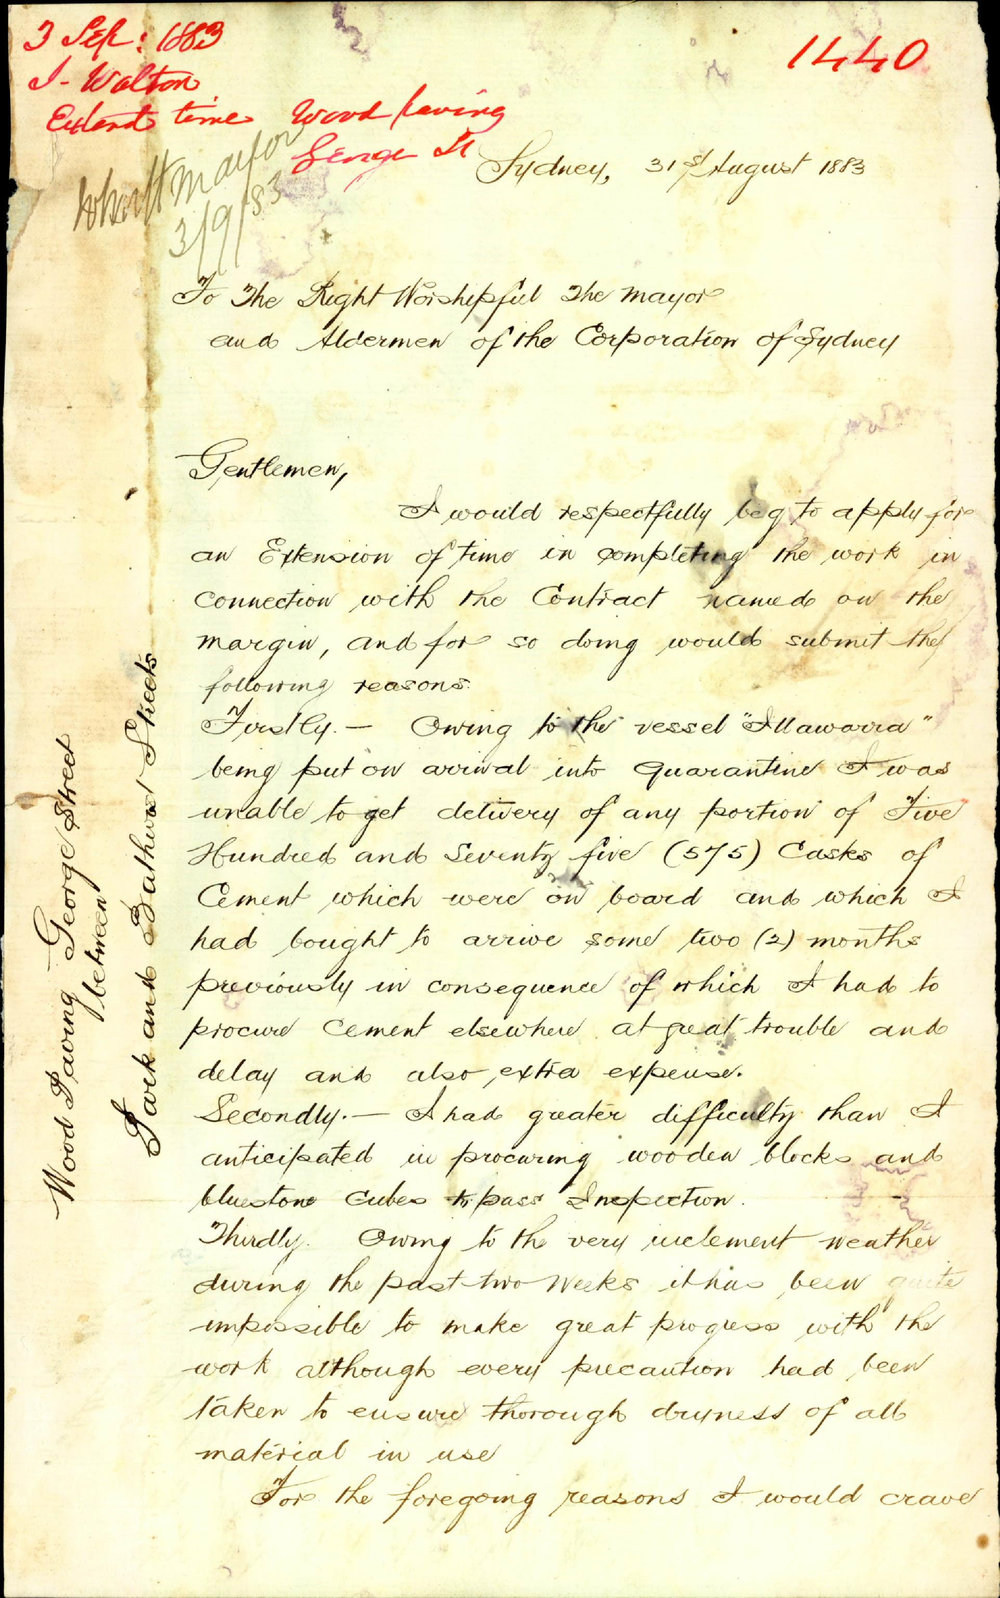 3 Sep: 1883
J. Walton
Extend time Wood paving
George St
1440
Mayor
3/9/83
Sydney, 31st August 1883
To The Right Worshipful The Mayor
and Aldermen of the Corporation of Sydney
Gentlemen,
I would respectfully beg to apply for
an Extension of time in completing the work in
connection with the Contract named on the
margin, and for so doing would submit the
following reasons.
Firstly. — Owing to the vessel "Illawarra"
being put on arrival into Quarantine I was
unable to get delivery of any portion of Five
Hundred and Seventy five (575) Casks of
Cement which were on board and which I
had bought to arrive some two (2) months
previously in consequence of which I had to
procure Cement elsewhere at great trouble and
delay and also extra expense.
Secondly. — I had greater difficulty than I
anticipated in procuring wooden blocks and
bluestone cubes to pass Inspection.
Thirdly. Owing to the very inclement weather
during the past two weeks it has been quite
impossible to make great progress with the
work although every precaution had been
taken to ensure thorough dryness of all
material in use
For the foregoing reasons I would crave
Wood Paving George Street
between
Park and Bathurst Streets